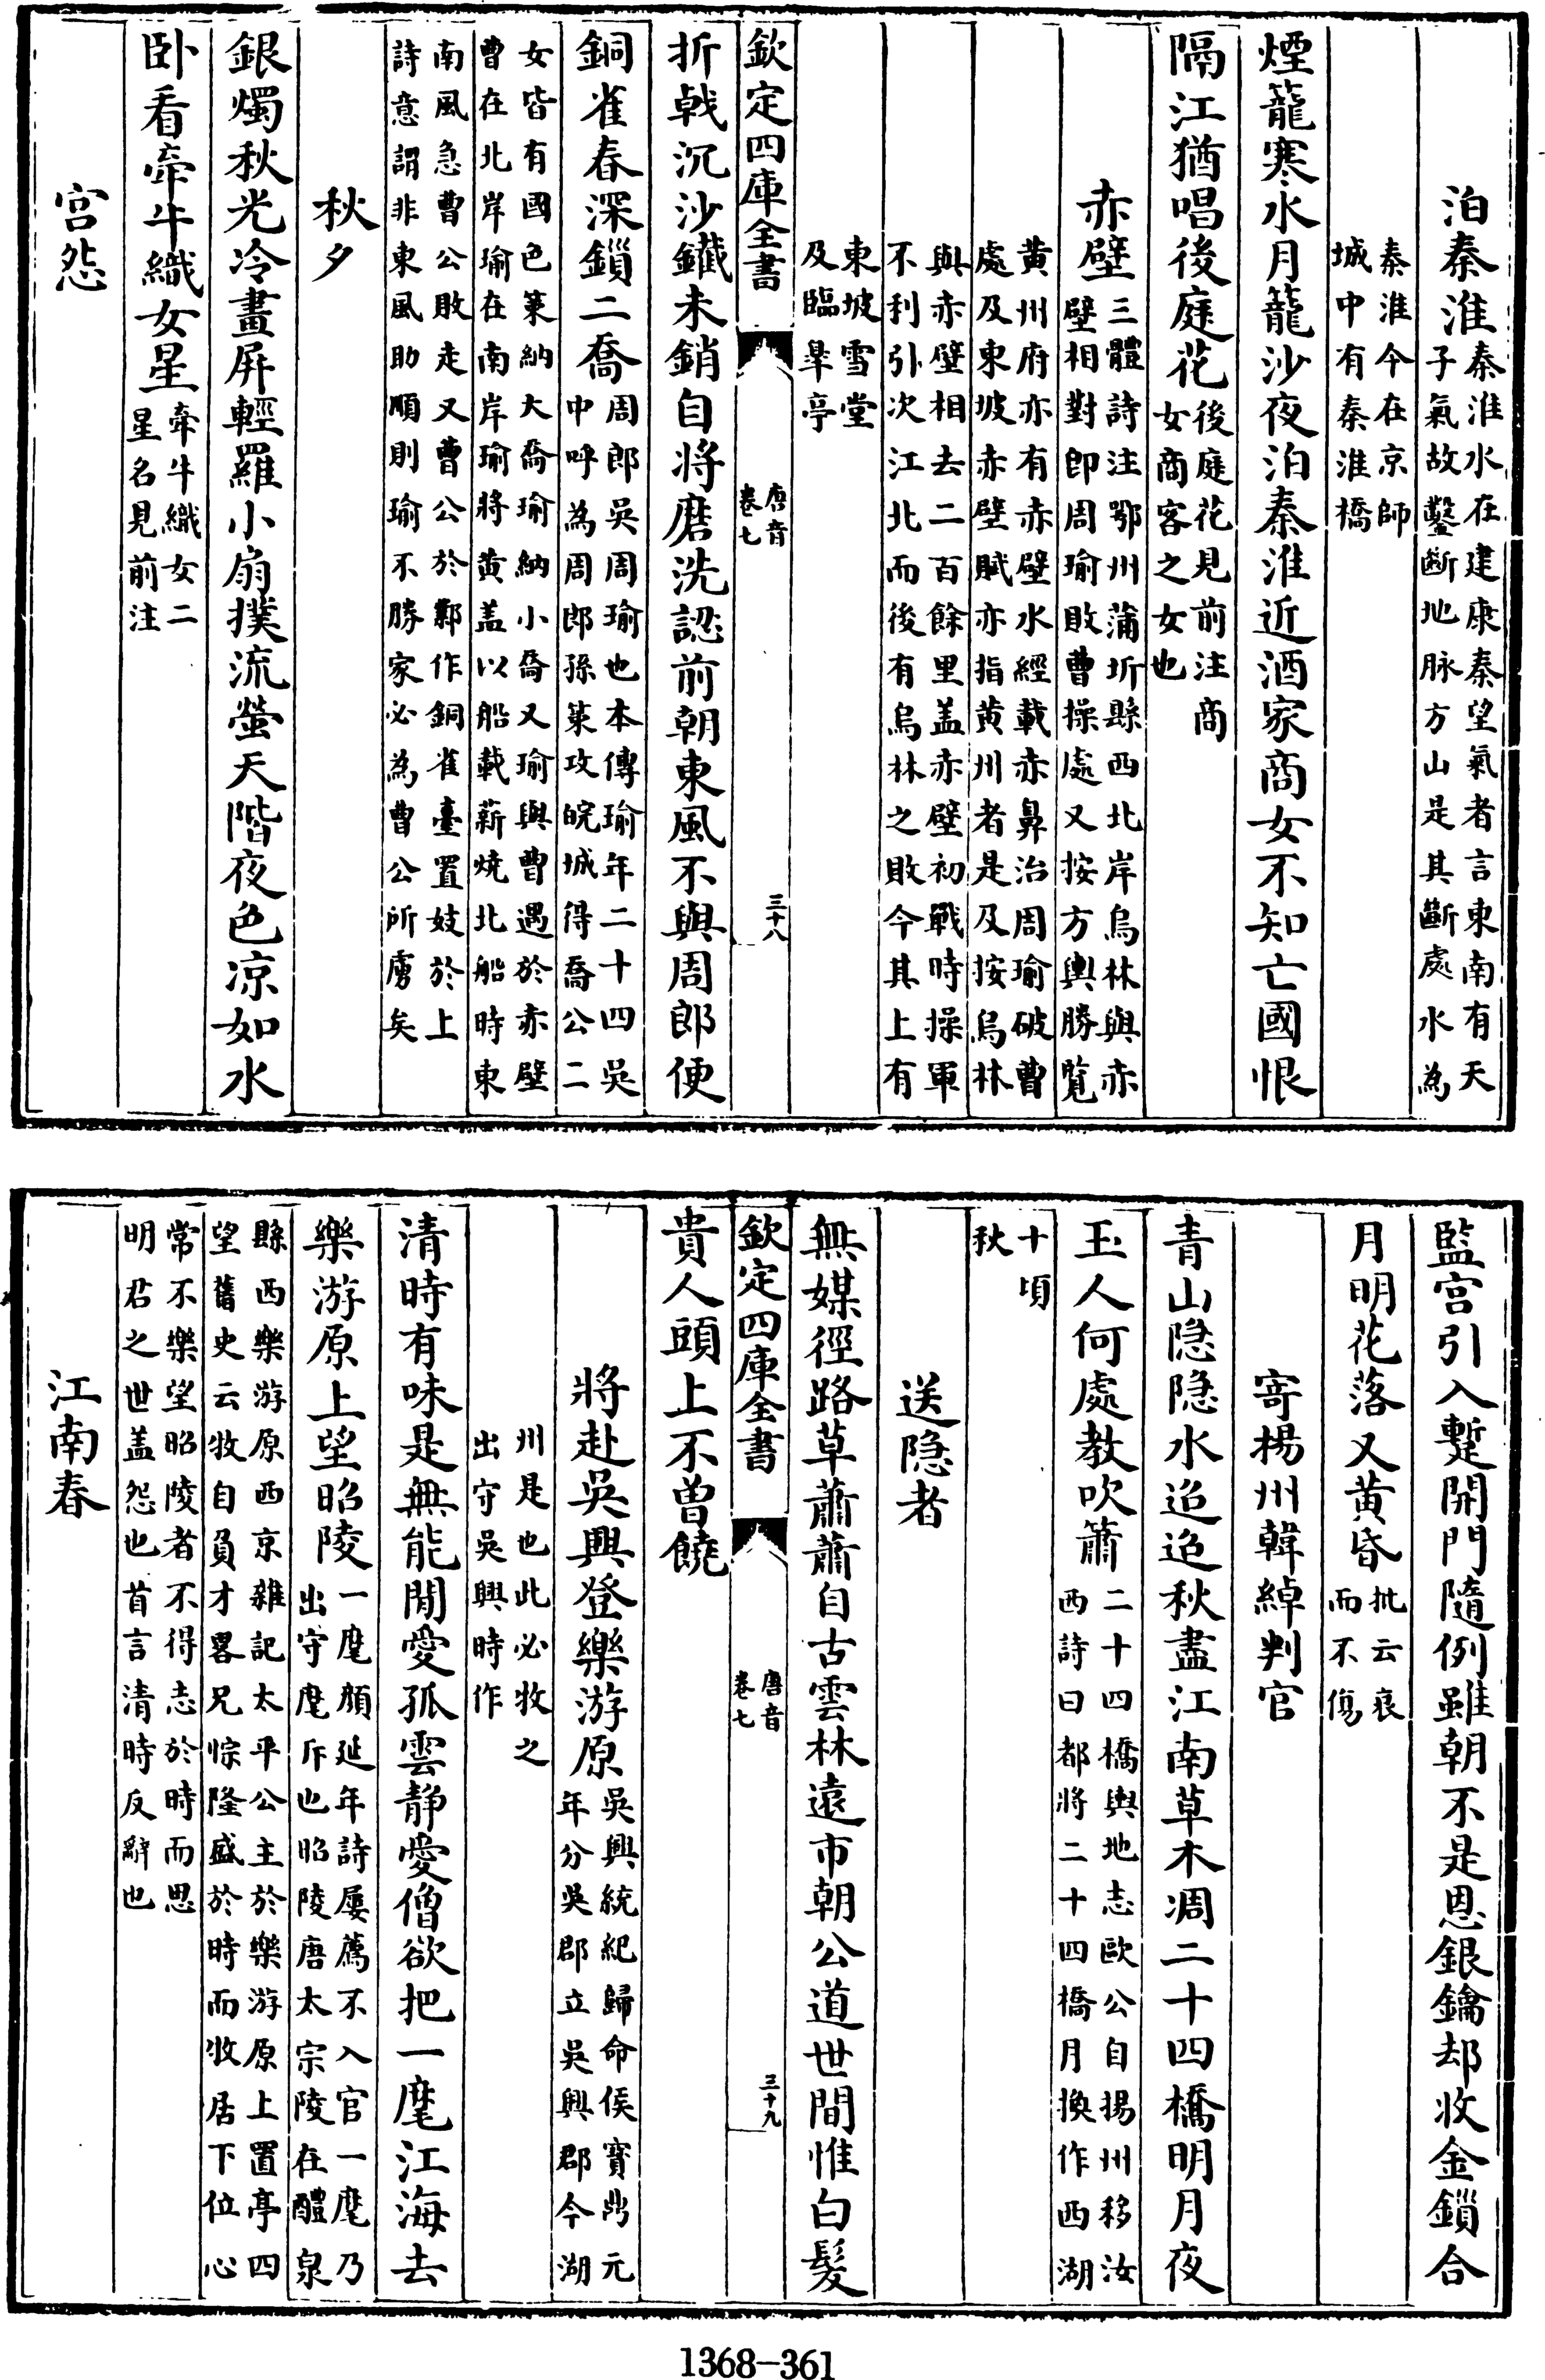 泊秦淮秦淮水在建康秦望氣者言東南有天子氣故鑿斷地脉方山是其斷處水為
秦淮今在京師城中有秦淮橋
煙籠寒水月籠沙夜泊秦淮近酒家商女不知亡國恨
隔江猶唱後庭花後庭花見前注商女商客之女也
赤壁三體詩注鄂州蒲圻縣西北岸烏林與赤壁相對即周瑜敗曹操處又按方輿勝覽
黄州府亦有赤壁水經載赤鼻治周瑜破曹處及東坡赤壁賦亦指黄州者是及按烏林
與赤壁相去二百餘里盖赤壁初戰時操軍不利引次江北而後有烏林之敗今其上有
東坡雪堂及臨皐亭
欽定四庫全書 唐音卷七 三十八
折戟沉沙鐵未銷自將磨洗認前朝東風不與周郎便
銅雀春深鎻二喬周郎吳周瑜也本傳瑜年二十四吳中呼為周郎孫策攻皖城得喬公二
女皆有國色策納大喬瑜納小喬又瑜與曹遇於赤壁曹在北岸瑜在南岸瑜將黄盖以船載薪燒北船時東
南風急曹公敗走又曹公於鄴作銅雀臺置妓於上詩意謂非東風助順則瑜不勝家必為曹公所虜矣
秋夕
銀燭秋光冷畫屏輕羅小扇撲流螢天階夜色凉如水
卧看牽牛織女星牽牛織女二星名見前注
宮怨
監宮引入蹔開門隨例雖朝不是恩銀鑰却收金鎻合
月明花落又黄昏批云哀而不傷
寄楊州韓綽判官
青山隐隐水迢迢秋盡江南草木凋二十四橋明月夜
玉人何處教吹簫二十四橋輿地志歐公自揚州移汝西詩曰都將二十四橋月換作西湖
十頃秋
送隐者
無媒徑路草蕭蕭自古雲林遠市朝公道世間惟白髮
欽定四庫全書 唐音卷七 三十九
貴人頭上不曽饒
將赴吳興登樂游原吳興統紀歸命侯寳鼎元年分吳郡立吳興郡今湖
州是也此必牧之出守吳興時作
清時有味是無能閒愛孤雲靜愛僧欲把一麾江海去
樂游原上望昭陵一麾顔延年詩屢薦不入官一麾乃出守麾斥也昭陵唐太宗陵在醴泉
縣西樂游原西京雜記太平公主於樂游原上置亭四望舊史云牧自負才畧兄悰隆盛於時而牧居下位心
常不樂望昭陵者不得志於時而思明君之世盖怨也首言清時反辭也
江南春
1368-361